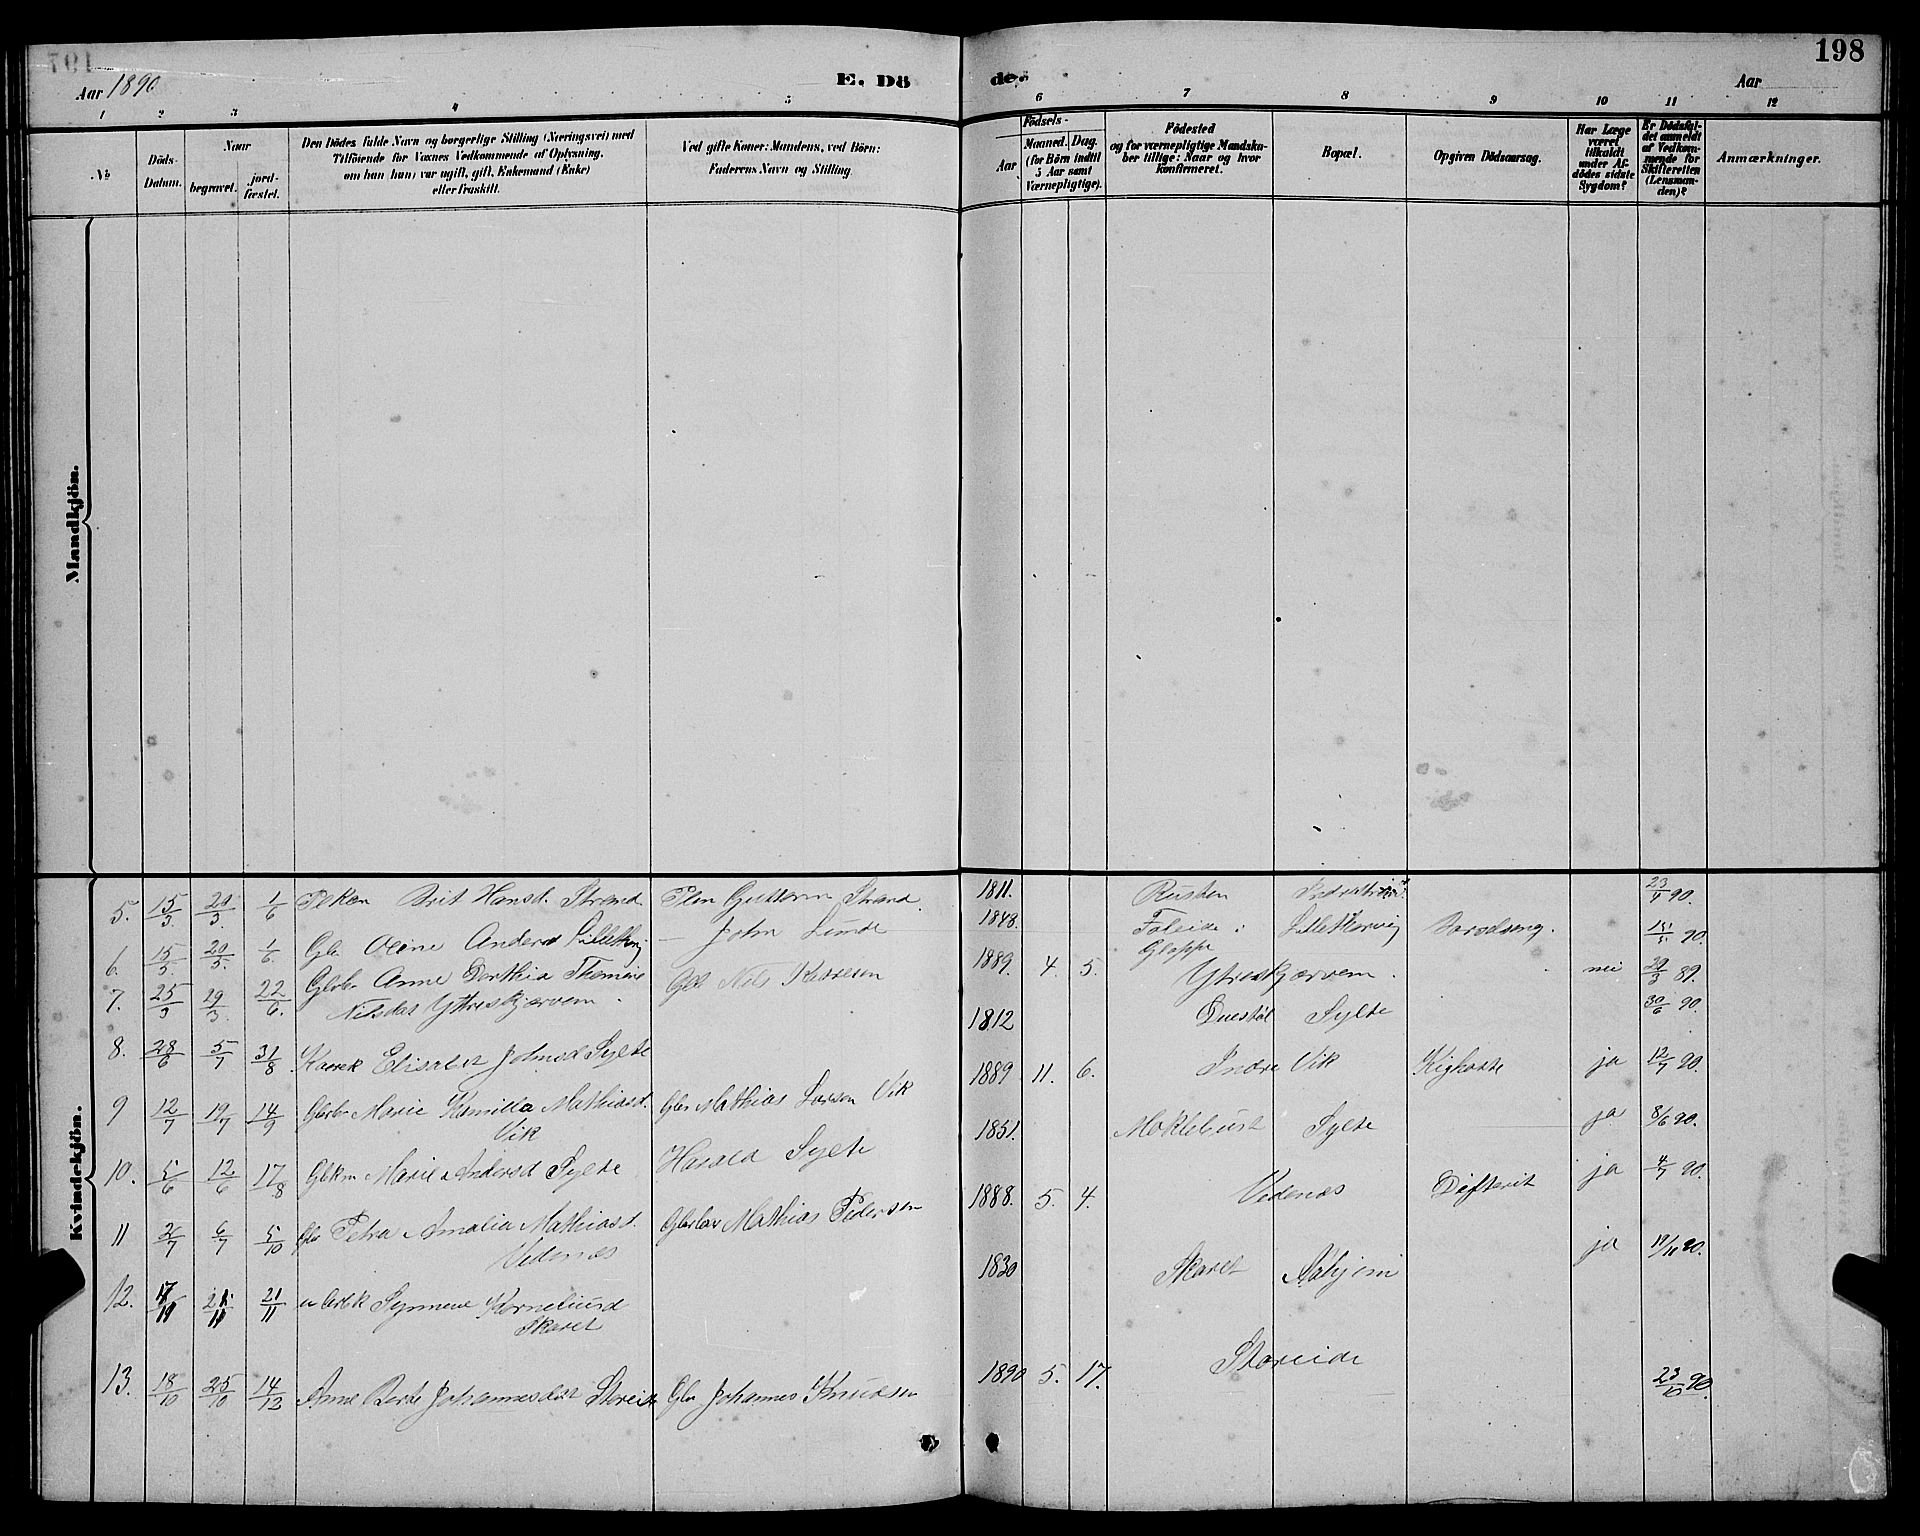 Aar 1890
E. Dö
de.
Aar
198
1 2 3 4 5 6 7 8 9 10 11 12
№
Döds-Datum.
Naar
begravet.
jord-fæstet.
Den Dödes fulde Navn og borgerlige Stilling (Næringsvei) med
Tilföiende for Voxnes Vedkommende af Oplysning,
om han (hun) var ugift, gift, Enkemand (Enke)
eller fraskilt.
Ved gifte Koner: Mandens, ved Börn:
Faderens Navn og Stilling.
Födsels-
Aar
Maaned. Dag.
(for Börn indtil
5 Aar samt
Værnepligtige).
Födested
og for værnepligtige Mandska-
ber tillige: Naar og hvor
konfirmeret.
Bopæl.
Opgiven Dödsaarsag.
Har Læge
været
tilkaldt
under Af-
dödes sidste
Sygdom?
Er Dödsfal-
det anmeldt
af Vedkom-
mende for
Skifteretten
(Lensman-
den)?
Anmærkninger.
Mandkjön.
Kvindekjön.
5. 15/3 20/3 1/6 Brit Hansd. Strand Guttorm Strand 1811. Rusten 23/4 90.
6. 15/5 20/5 1/6 Oline Andersd John Lunde 1848. Foleide i Gloppe Barselseng. 15/5 90.
7. 25/3 29/3 22/6 Anne Dorthia Thomine
Nilsdat Ytreskjærvem. Nils 1889. 4. 5. Ytreskjærvem. nei 29/3 89.
8. 28/6 5/7 31/8 Elisabet Johnsd Sylte 1812 Duestøl Sylte 30/6 90.
9 12/7 19/7 14/9 Marie Kamilla Mathiasd.
Vik Mathias Larsen Vik 1889 11. 6. Indre Vik Kighoste ja 12/7 90.
10. 5/6 12/6 17/8 Marie Andersd Sylte Harald Sylte 1851. Moklebust Sylte ja 8/6 90.
11 2/7 6/7 5/10 Petra Amalia Mathiasd.
Vedenæs Mathias Pedersen 1888. 5. 4. Vedenæs Difterit ja 4/7 90.
12. 21/11 Synneve Korneliusd
Skaret 1830 Skaret ja 19/11 90.
13. 18/10 25/10 14/12 Anne Berte Johannesdat Storeide Johannes Knudsen 1890 5. 17. Storeide 23/10 90.